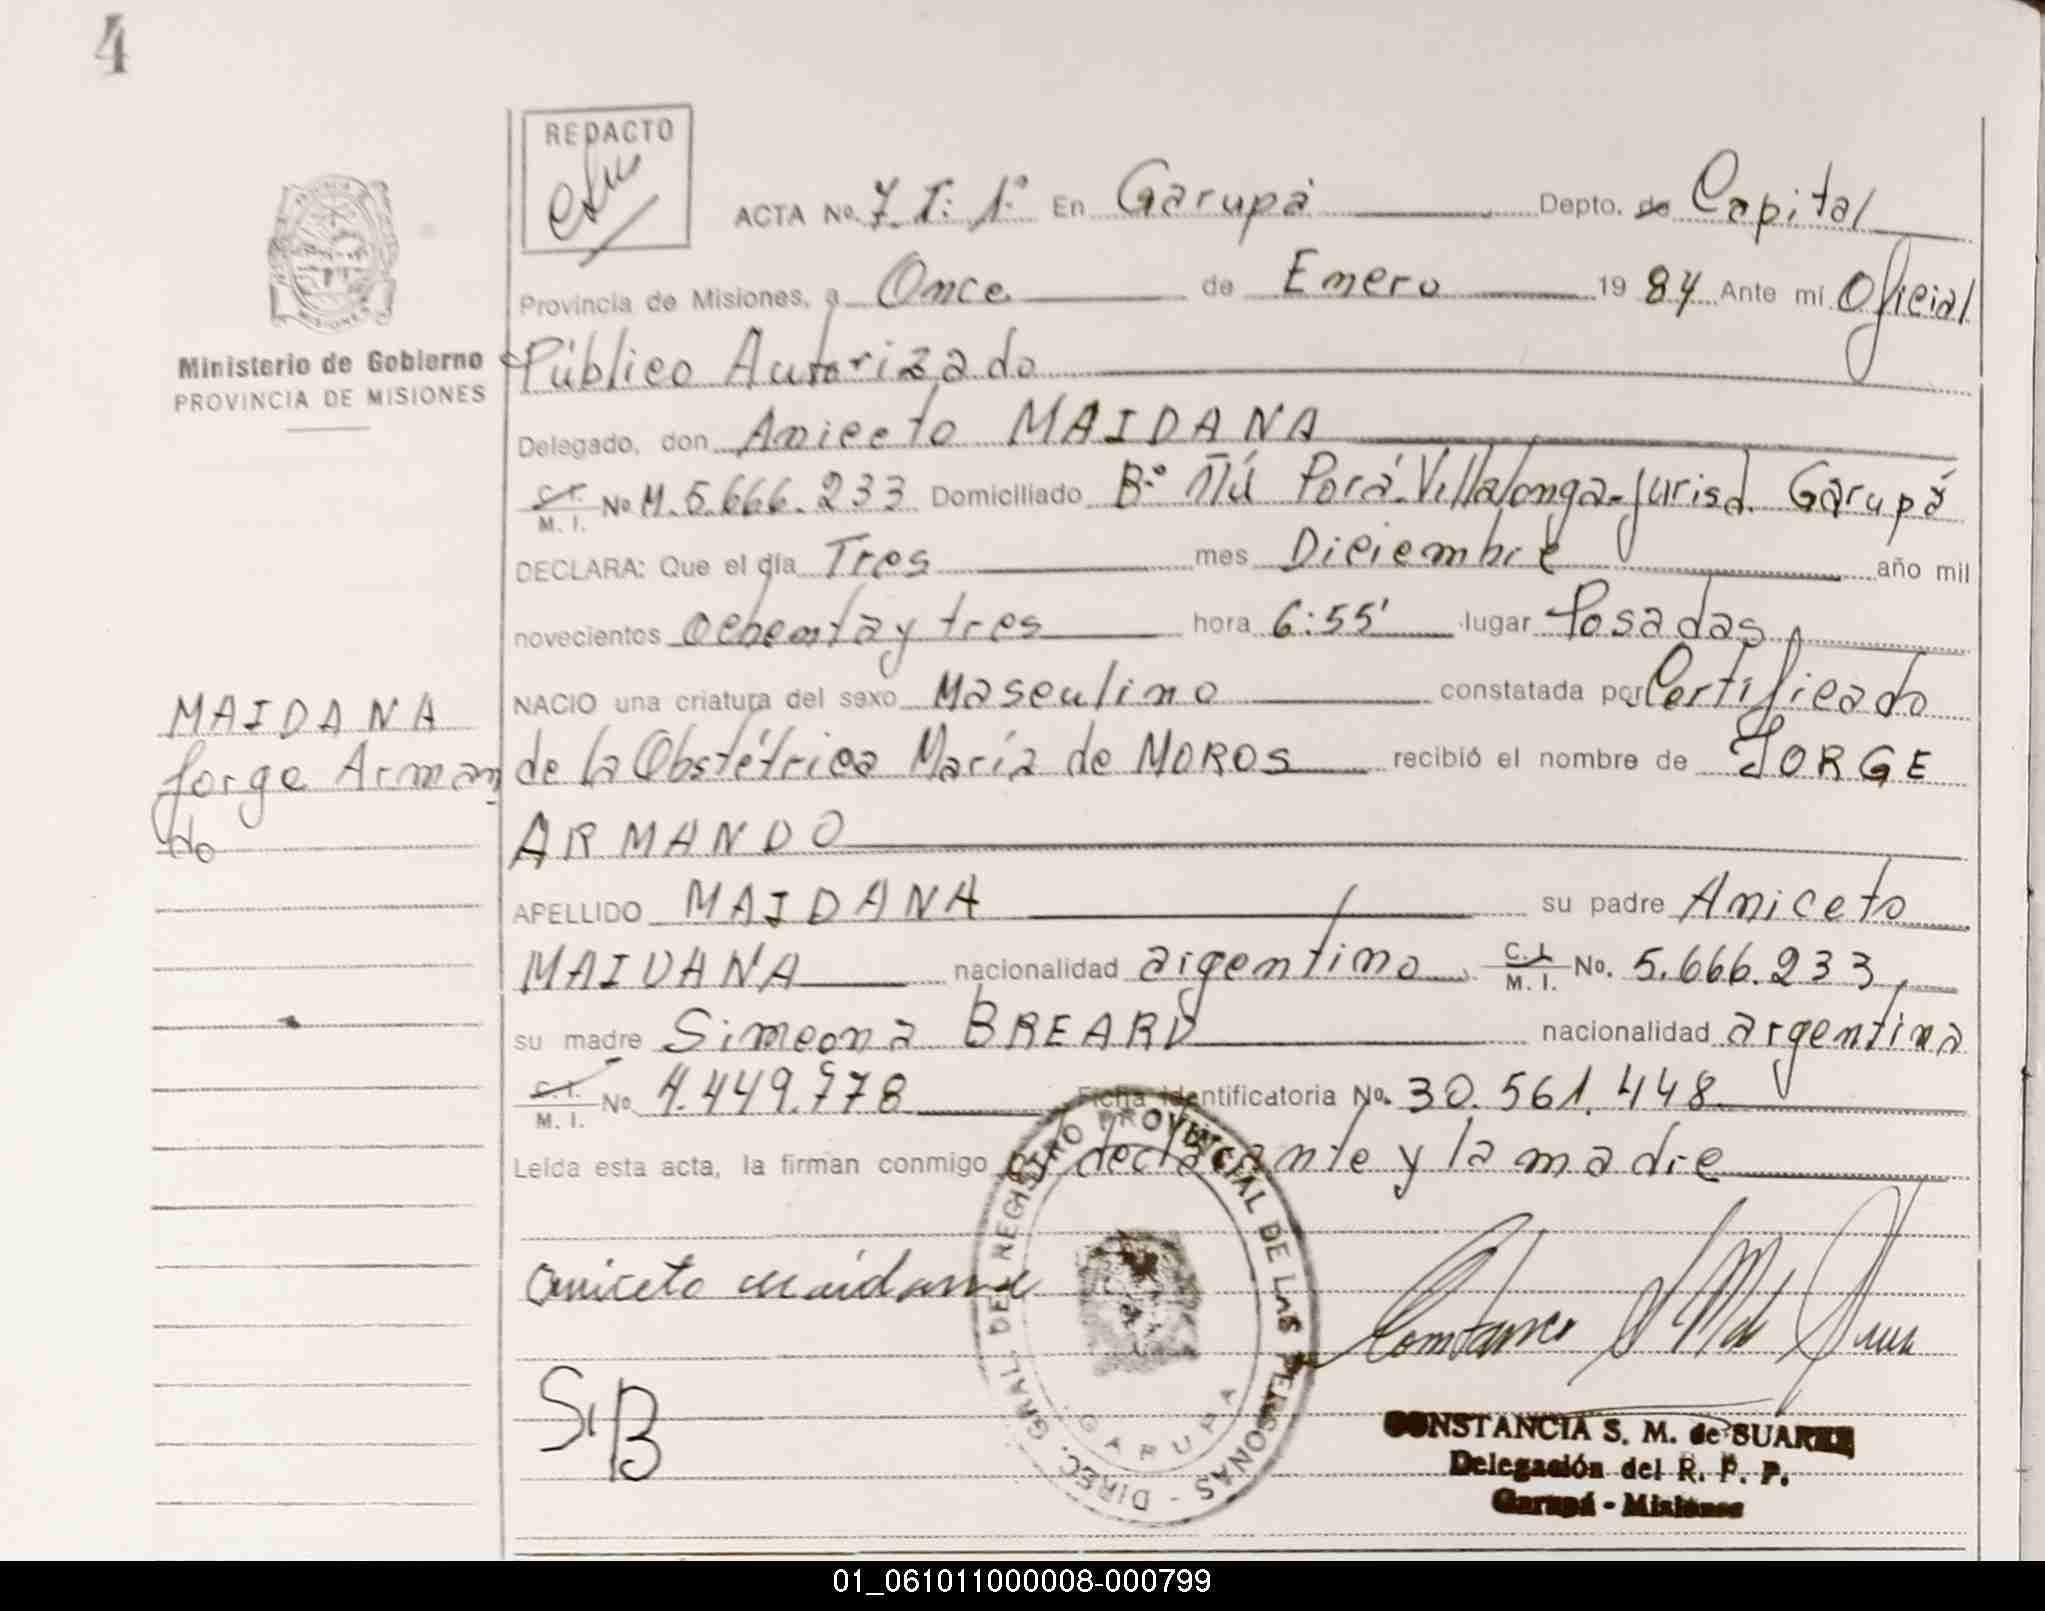 4
REDACTO
ACTA No. 7 T: 1º En Garupá Depto. de Capital
Provincia de Misiones, a Once de Enero 19 84 Ante mi Oficial
Ministerio de Gobierno
PROVINCIA DE MISIONES
Público Autorizado
Delegado, don Aniceto MAIDANA
C. I. M. I. No M. 5.666.233 Domiciliado Bº Ñú Porá-Villalonga-Jurisd. Garupá
DECLARA: Que el día Tres mes Diciembre año mil
novecientos ochenta y tres hora 6:55' lugar Posadas
NACIO una criatura del sexo Masculino constatada por Certificado
MAIDANA
Jorge Arman
do
de la Obstétrica María de MOROS recibió el nombre de JORGE
ARMANDO
APELLIDO MAIDANA su padre Aniceto
MAIDANA nacionalidad argentino C. I. M. I. No. 5.666.233
su madre Simeona BREARD nacionalidad argentina
C. I. M. I. No 4.449.778 Ficha Identificatoria No. 30.561.448
Leída esta acta, la firman conmigo el declarante y la madre
aniceto maidana
S.B
DIREC. GRAL. DE REGISTRO PROVINCIAL DE LAS PERSONAS -
GARUPA
CONSTANCIA S. M. de SUAREZ
Delegación del R. P. P.
Garupá - Misiones
01_061011000008-000799